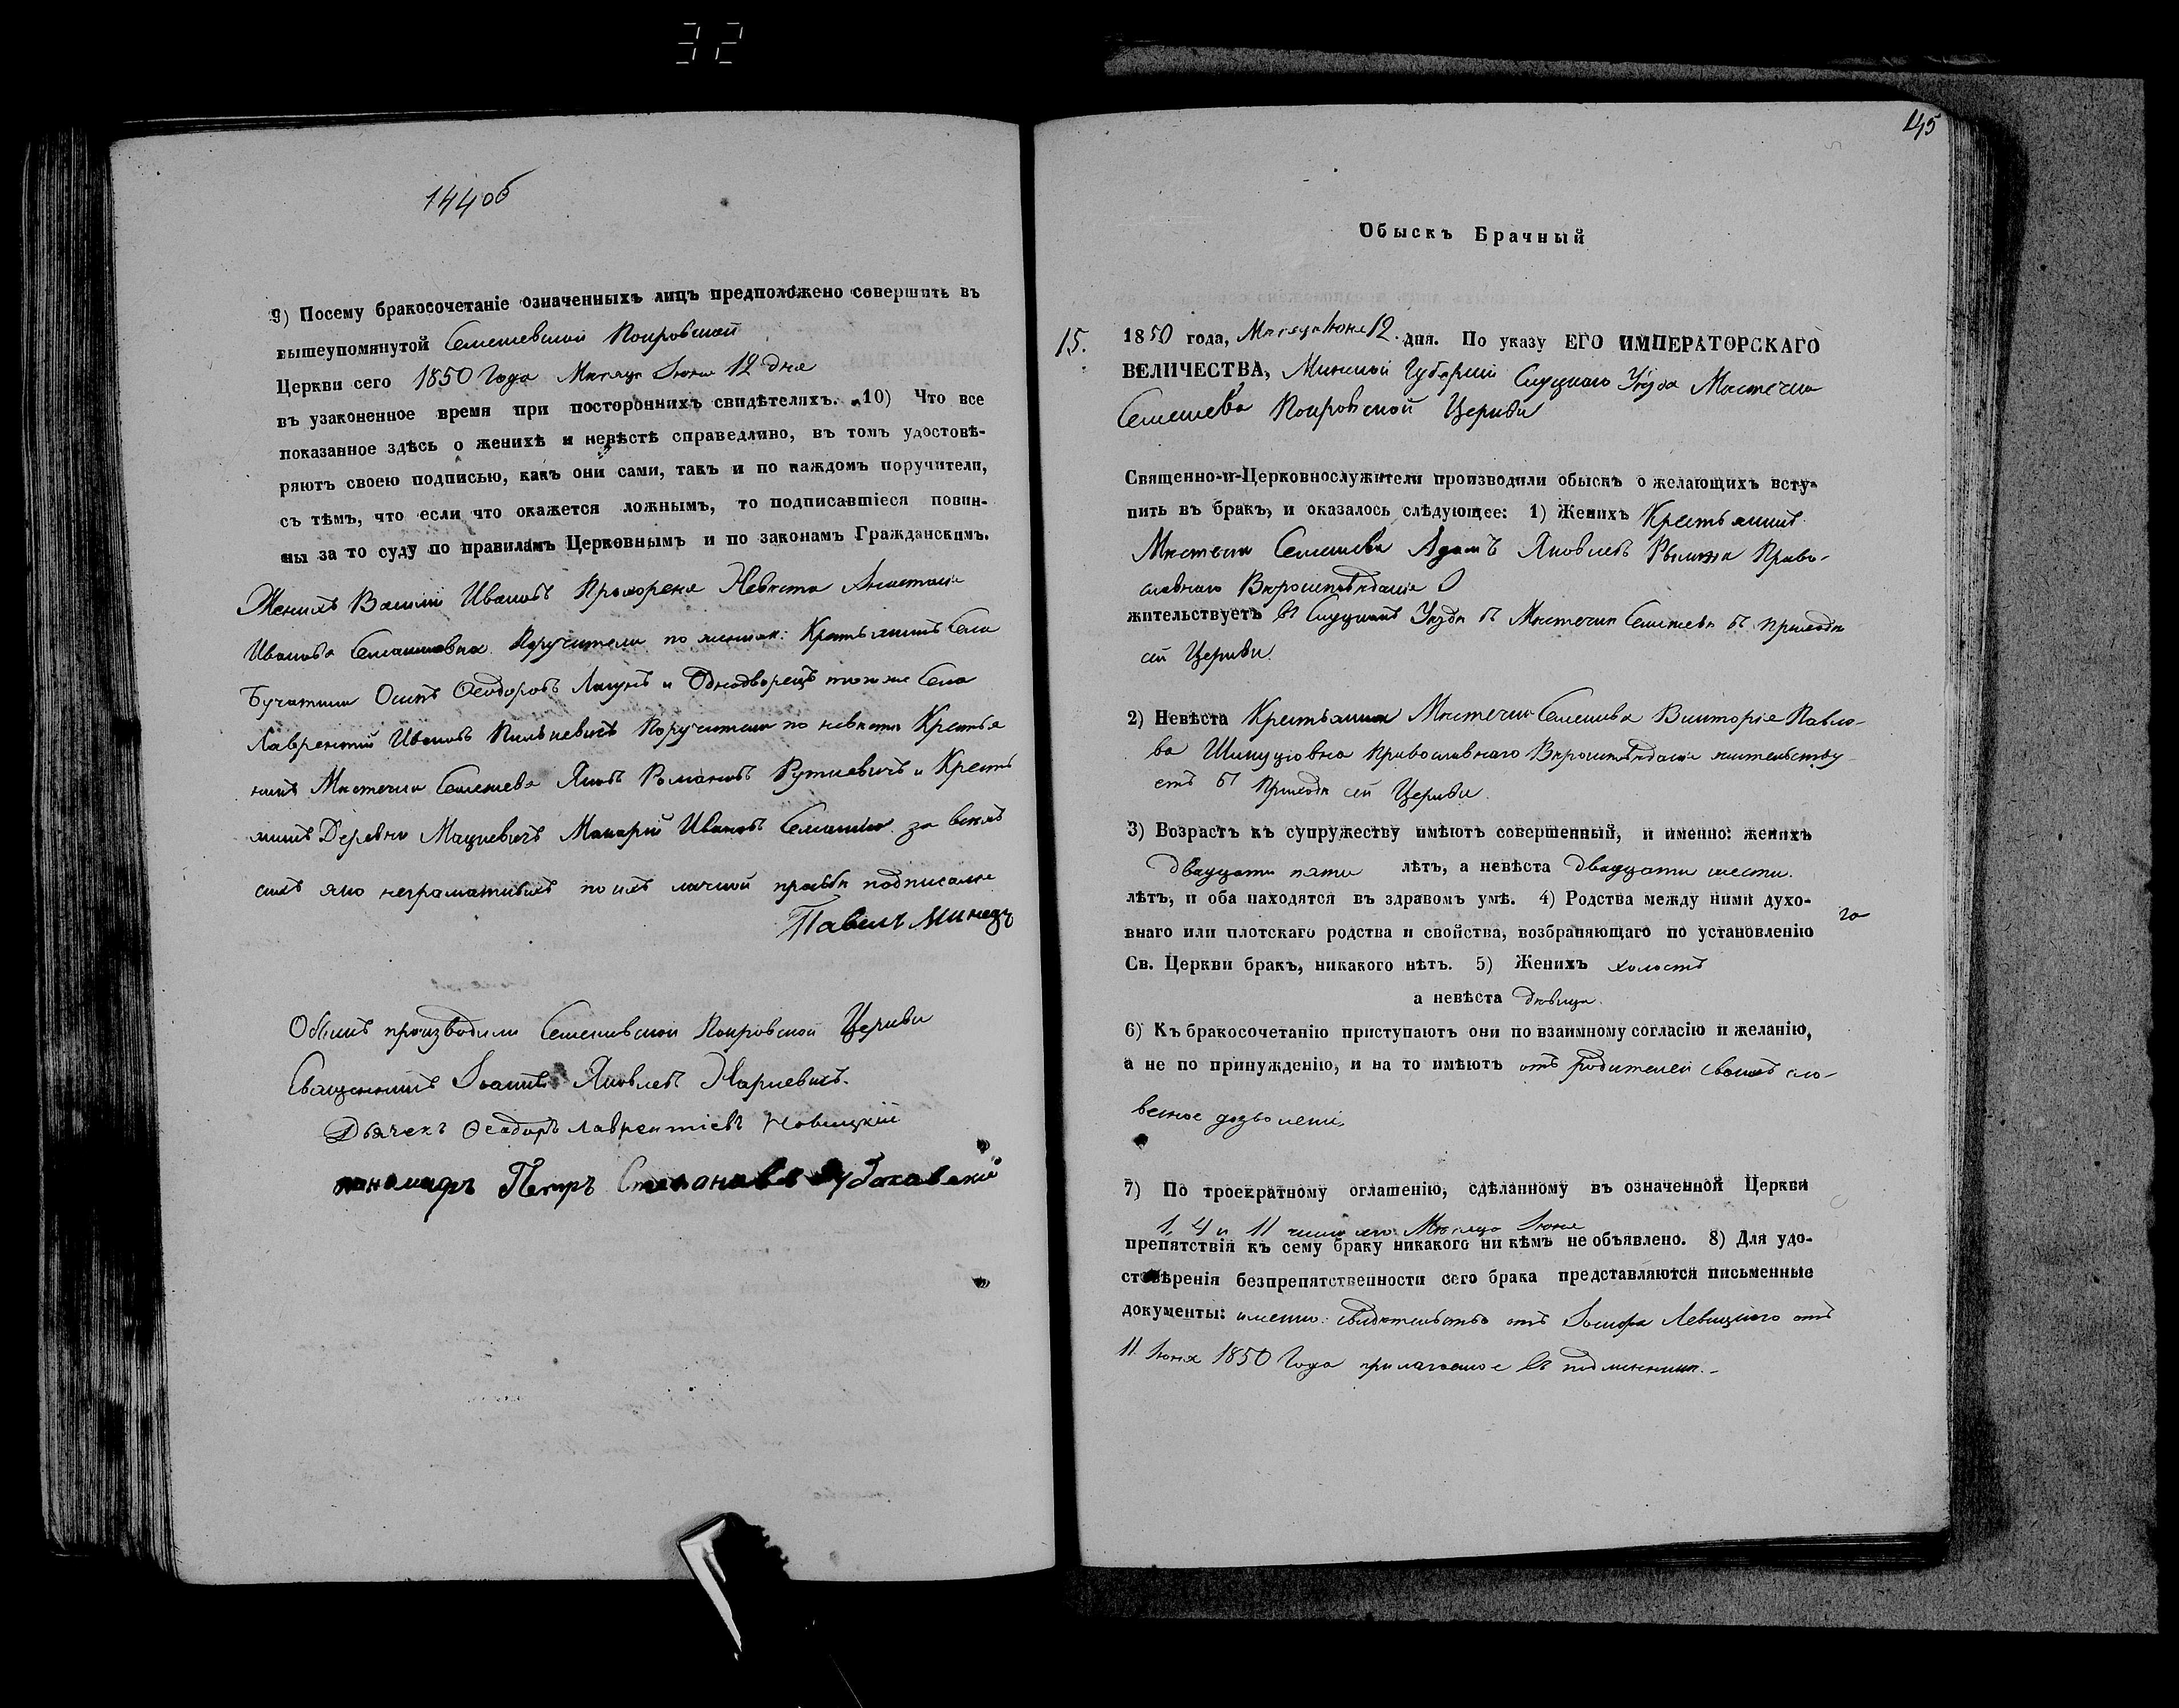 32
144 об
9) Посему бракосочетаніе означенныхъ лицъ предположено совершить въ
вышеупомянутой Семежевской Покровской
Церкви сего 1850 Года Мѣсяца Іюня 12 дня
въ узаконенное время при постороннихъ свидѣтеляхъ. 10) Что все
показанное здѣсь о женихѣ и невѣстѣ справедливо, въ томъ удостовѣ-
ряютъ своею подписью, какъ они сами, такъ и по каждомъ поручители,
съ тѣмъ, что если что окажется ложнымъ, то подписавшіеся повин-
ны за то суду по правиламъ Церковнымъ и по законамъ Гражданскимъ.
Женихъ Василій Ивановъ Невѣста Анастасія
Иванова Поручители по женихѣ: Крестьянинъ Села
Осипъ Ѳеодоровъ и Однодворецъ тогоже Села
Лаврентій Ивановъ Поручители по невѣстѣ Крестья
нинъ Мѣстечка Семежева Яковъ Романовъ Руткевичъ и Кресть
янинъ Деревни Мацкевичъ Макарій Ивановъ за всѣхъ
сихъ яко неграматныхъ по ихъ личной прозьбѣ подписался
Павелъ
Обыскъ производили Семежевской Покровской Церкви
Священникъ Іоаннъ Яковлевъ
Дьячекъ Ѳеадоръ Лаврентіевъ Новицкій
пономаръ Петръ
145
Обыскъ Брачный
15.
1850 года, Мѣсяца Іюня 12. дня. По указу ЕГО ИМПЕРАТОРСКАГО
ВЕЛИЧЕСТВА, Минской Губерніи Слуцкаго Уѣзда Мѣстечка
Семежева Покровской Церкви
Священно-и-Церковнослужители производили обыскъ о желающихъ всту-
пить въ бракъ, и оказалось слѣдующее: 1) Женихъ Крестьянинъ
Мѣстечка Семежева Адамъ Яковлевъ Право-
славнаго Вѣроисповѣданія
жительствуетъ въ Слуцкомъ Уѣздѣ въ Мѣстечкѣ Семежевѣ въ приходѣ
сей Церкви.
2) Невѣста Крестьянка Мѣстечка Семежева Викторія Павло-
ва Православнаго Вѣроисповѣданія жительству-
етъ въ Приходѣ сей Церкви.
3) Возрастъ къ супружеству имѣютъ совершенный, и именно: женихъ
двадцати пяти лѣтъ, а невѣста двадцати шести.
лѣтъ, и оба находятся въ здравомъ умѣ. 4) Родства между ними духо-
внаго или плотскаго родства и свойства, возбраняющаго по установленію
го
Св. Церкви бракъ, никакого нѣтъ. 5) Женихъ холостъ
а невѣста дѣвица.
6) Къ бракосочетанію приступаютъ они по взаимному согласію и желанію,
а не по принужденію, и на то имѣютъ отъ родителей своихъ сло-
весное дозволеніе
7) По троекратному оглашенію, сдѣланному въ означенной Церкви
1, 4 и 11 Мѣсяца Іюня
препятствія къ сему браку никакого ни кѣмъ не объявлено. 8) Для удо-
стовѣренія безпрепятственности сего брака представляются письменные
документы: имянно: свидѣтельство отъ Левицкаго отъ
11 Іюня 1850 Года прилагаемое въ подлинникѣ.-